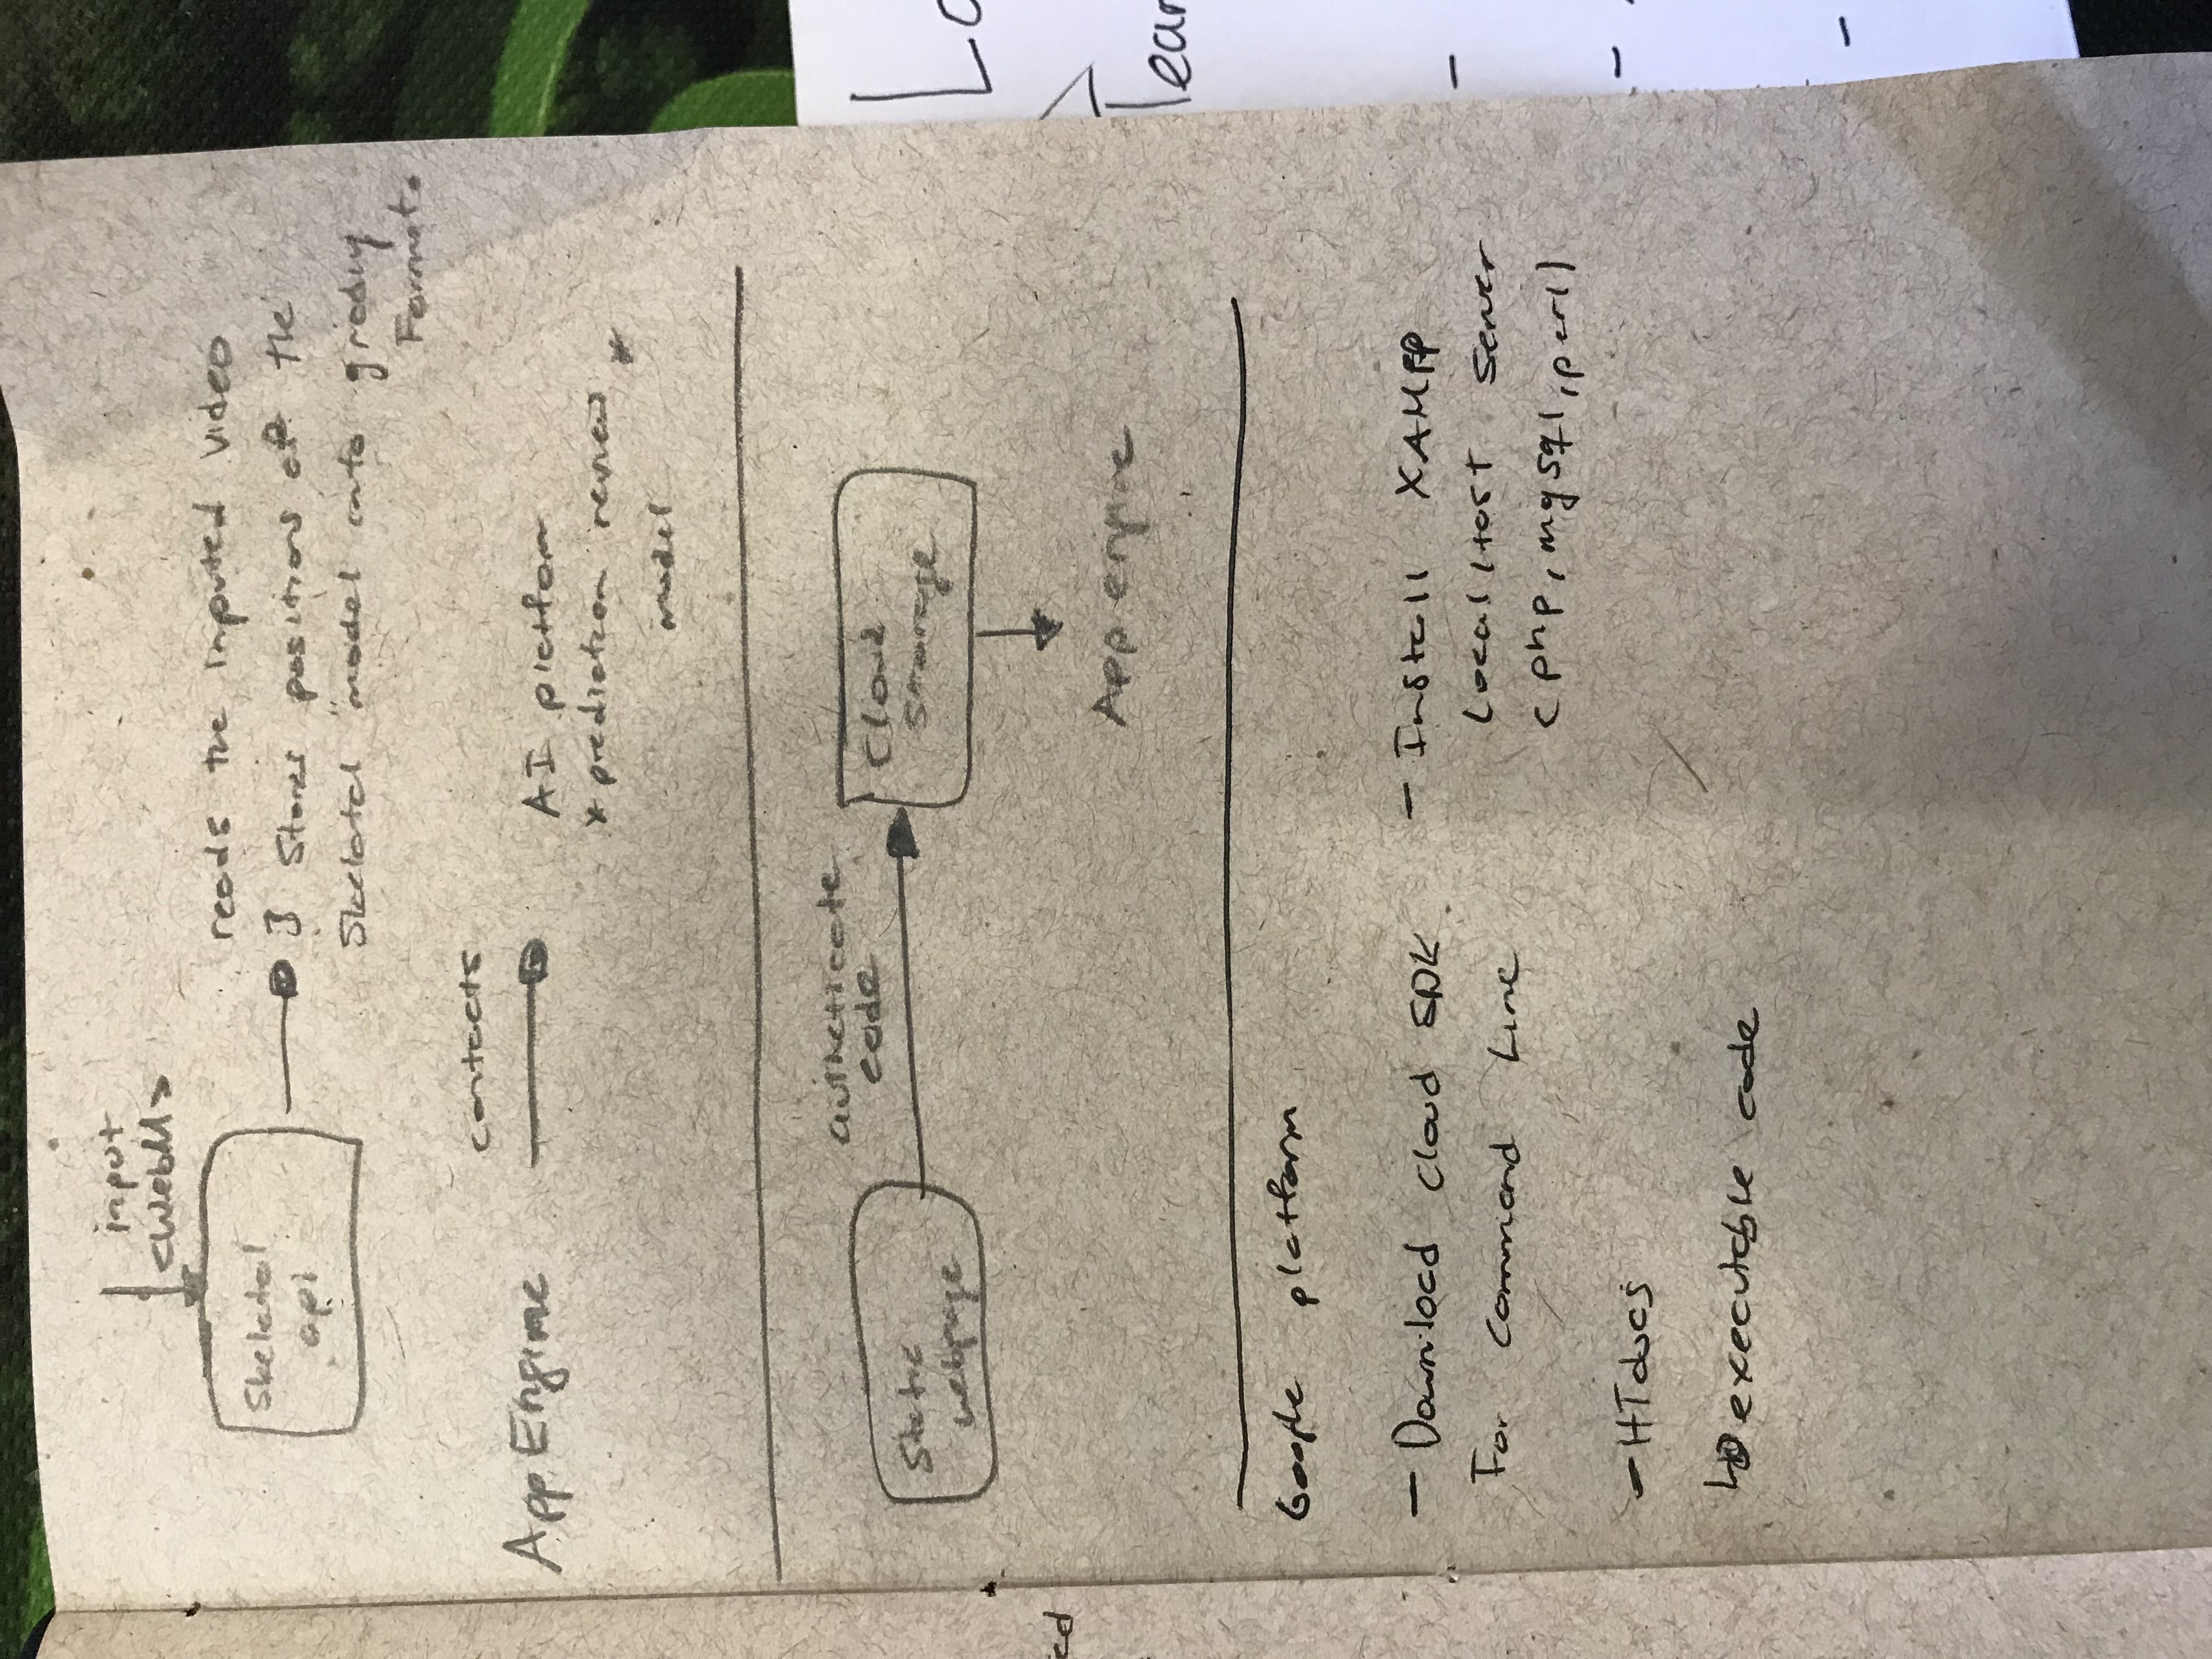 input
<WebM>
Skeletal
api
reads the inputed video
stores positions of the
Skelatal "model into
Format.
contacts
App Engine
AI platform
* prediction review *
model
authenticate
code
Static
webpage
Cloud
storage
App engine
Google platform
- Download Cloud SDK
For Command Line
- Install XAMPP
Localhost Server
(php, mysql, perl)
- HTdocs
executable code
[Lo
Tear
-
-
-
ed